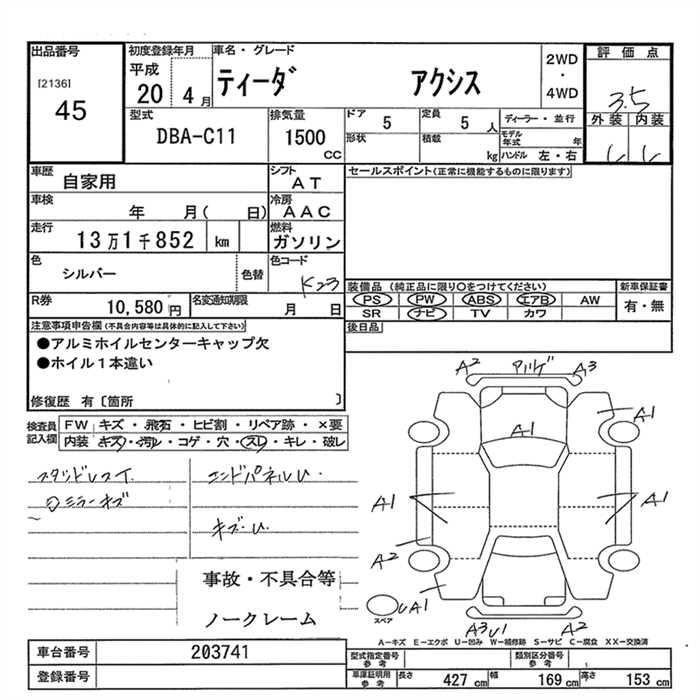 出品番号
[2136]
45
初度登録年月
平成
20 4月
車名・グレード
ティーダ アクシス
2WD
・
4WD
評価点
3.5
外装 内装
型式
DBA-C11
排気量
1500
CC
ドア
5
定員
5 人
形状
積載
kg
ディーラー・並行
モデル
年式 年
ハンドル 左・右
車歴
自家用
シフト
AT
セールスポイント(正常に機能するものに限ります)
車検
年 月( 日)
冷房
AAC
走行
13万1千852 km
燃料
ガソリン
色
シルバー
色替
色コード
K23
R券
10,580円
名変通知期限
月 日
装備品 (純正品に限り○をつけてください)
PS PW ABS エアB AW
SR ナビ TV カワ
新車保証書
有・無
後日品
注意事項申告欄(不具合内容等は具体的に記入して下さい)
●アルミホイルセンターキャップ欠
●ホイル1本違い
修復歴 有〔箇所 〕
検査員
記入欄
FW キズ・飛石・ヒビ割・リペア跡・×要
内装 キズ・汚レ・コゲ・穴・スレ・キレ・破レ
スタッドレス
ミラーキズ
エンドパネルU
キズ・U
事故・不具合等
ノークレーム
A2 A3
A1
A1
A1
A1
A2
A1
スペア
A3 U1 A2
A-キズ E-エクボ U-凹み W-補修跡 S-サビ C-腐食 XX-交換済
車台番号
203741
登録番号
型式指定番号
参考
類別区分番号
参考
車庫証明用
参考
長さ
427 cm
幅
169 cm
高さ
153 cm